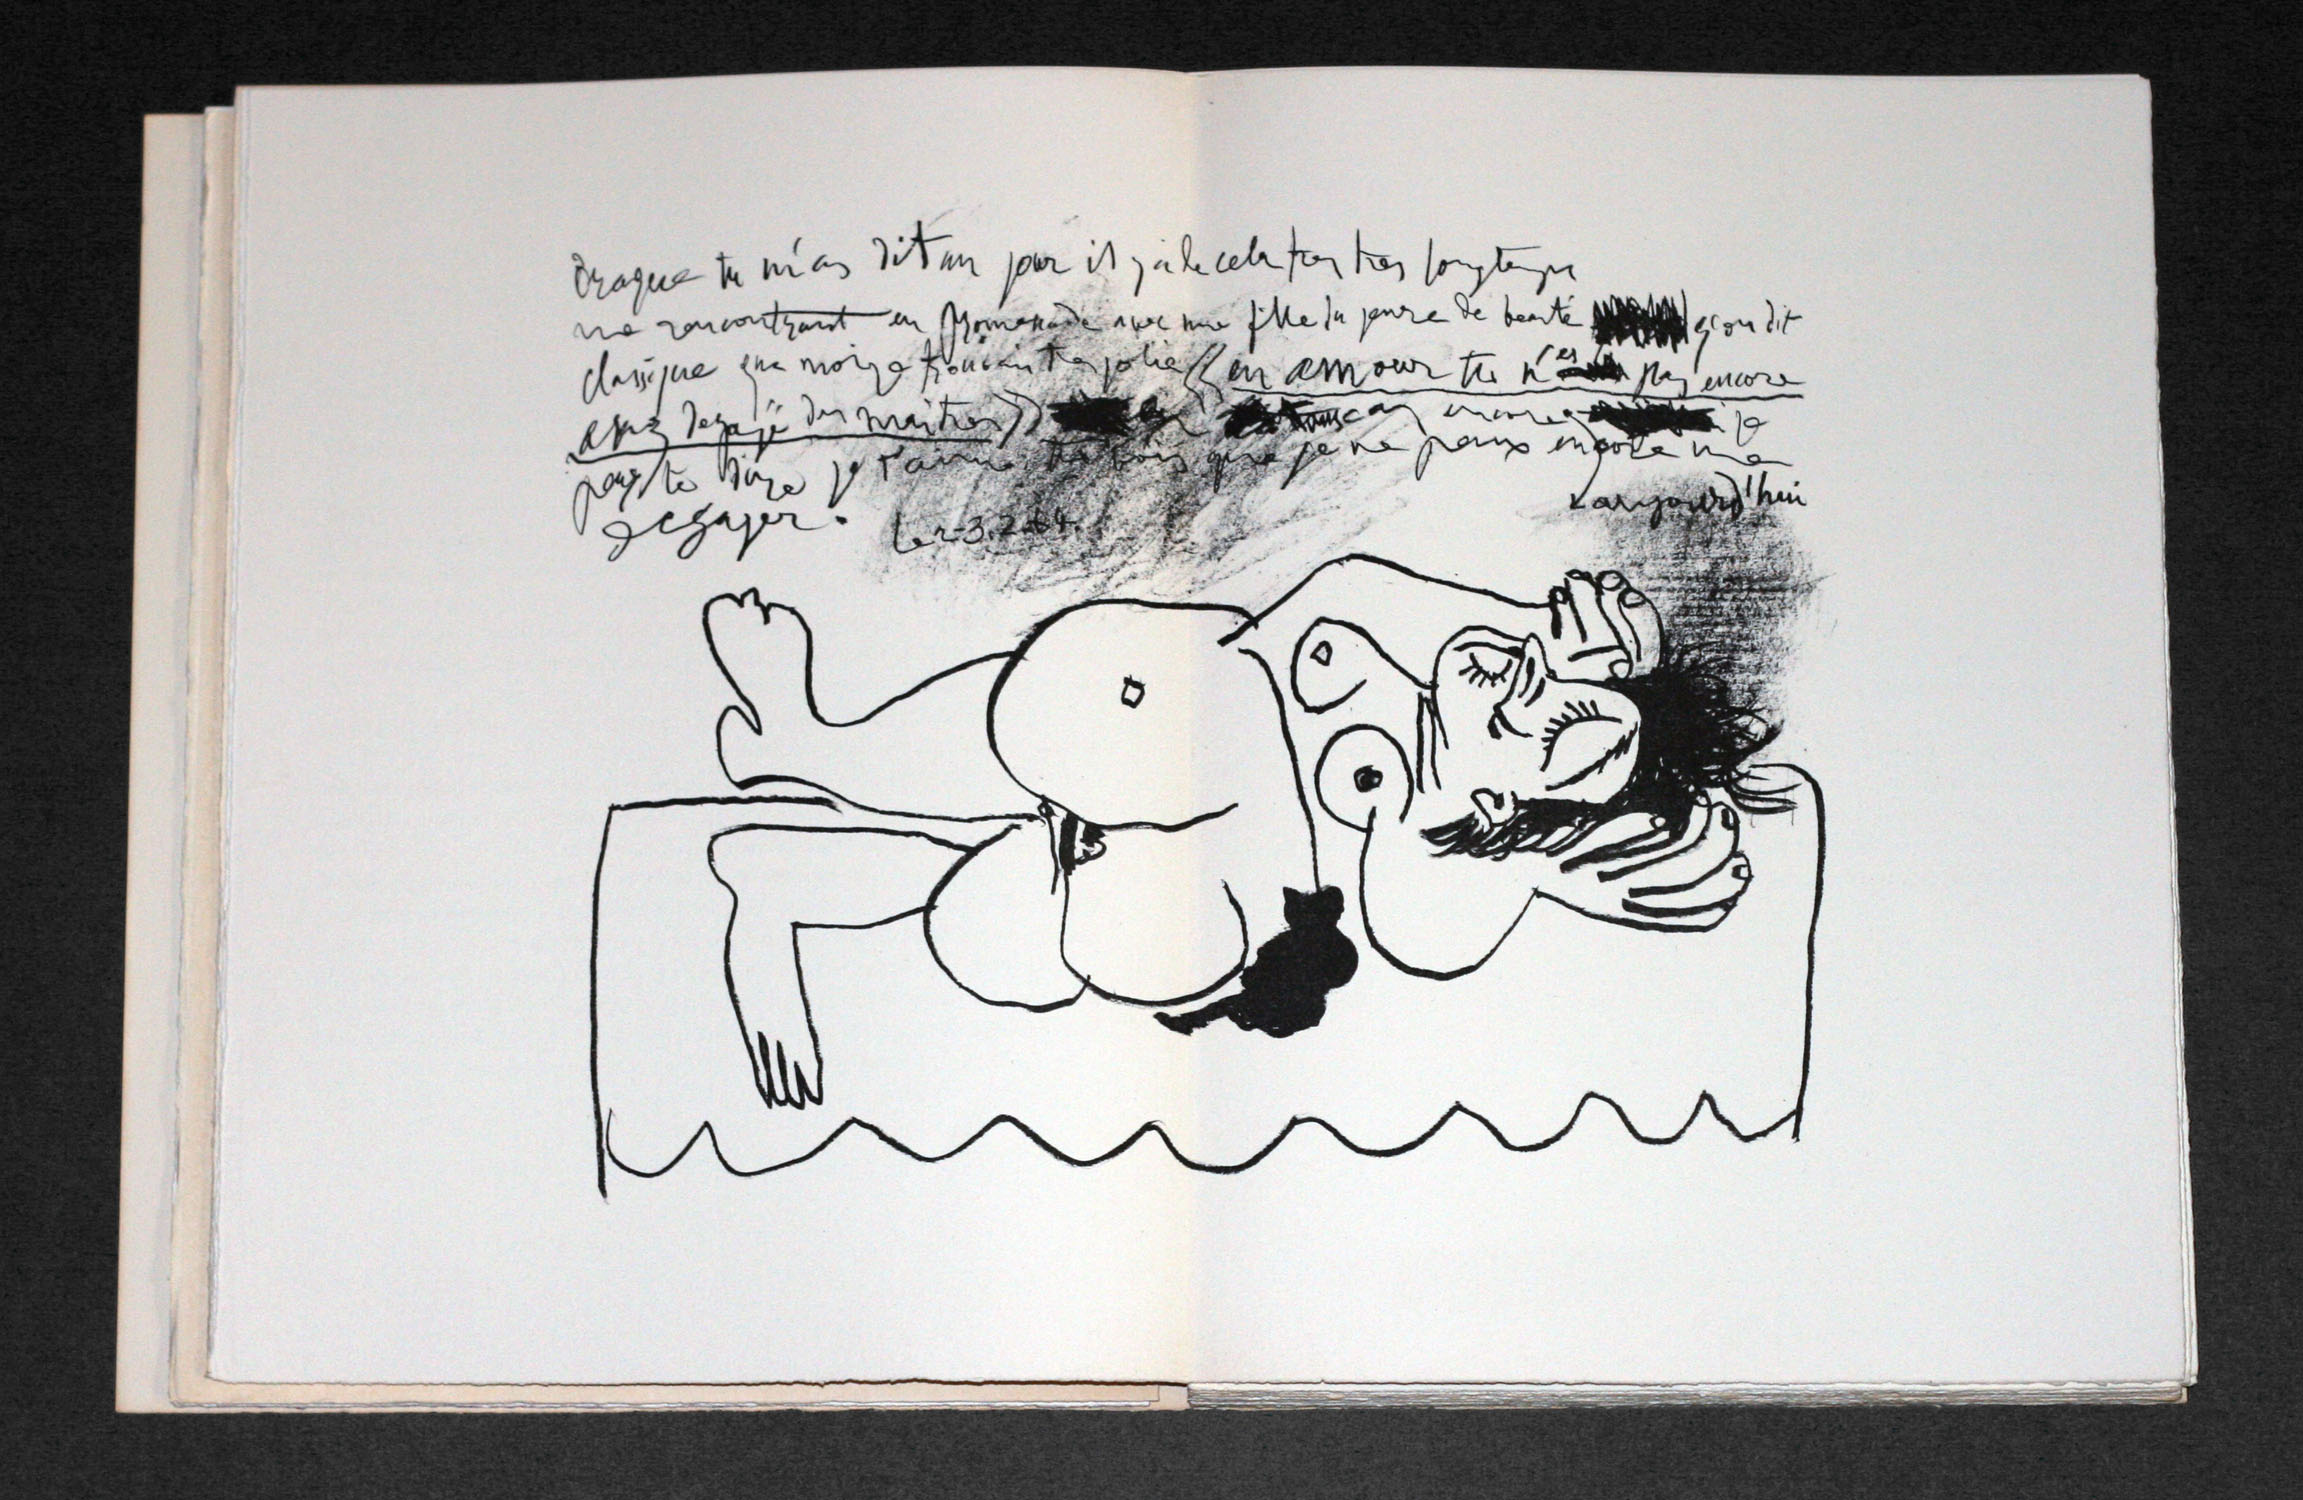 Braque tu m'as dit un jour il y a de cela tres tres longtemps
me rencontrant en promenade avec une fille du genre de beauté qu'on dit
classique que moi je trouvais tres jolie « en amour tu n'es pas encore
assez degagé des maitres » encore je
peux te dire je t'aime tu vois que je ne peux encore me
aujourd'hui
degager. Le